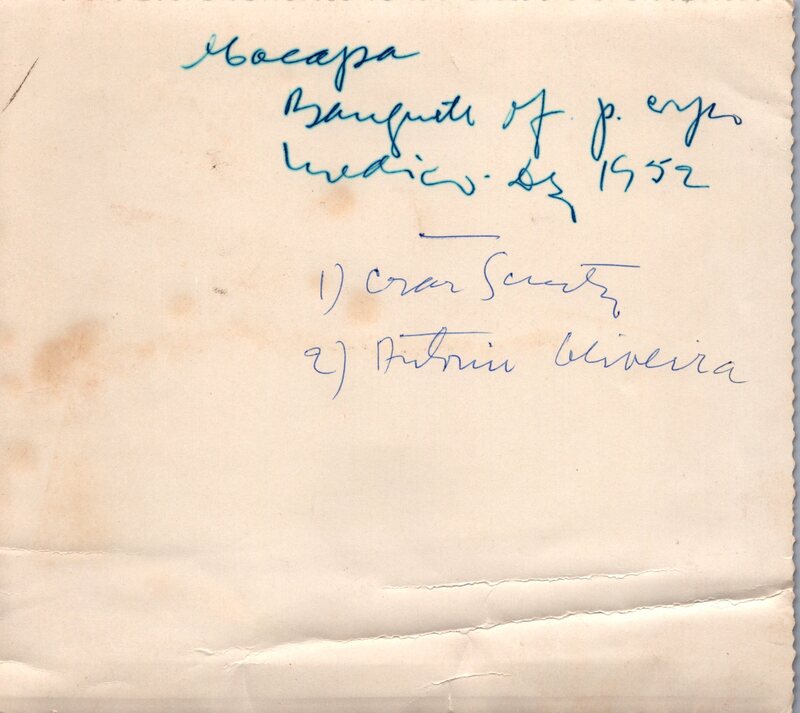 Macapa
Banquete of. p. corpo
medico. Dez 1952
1) Cesar
2) Antonio Oliveira